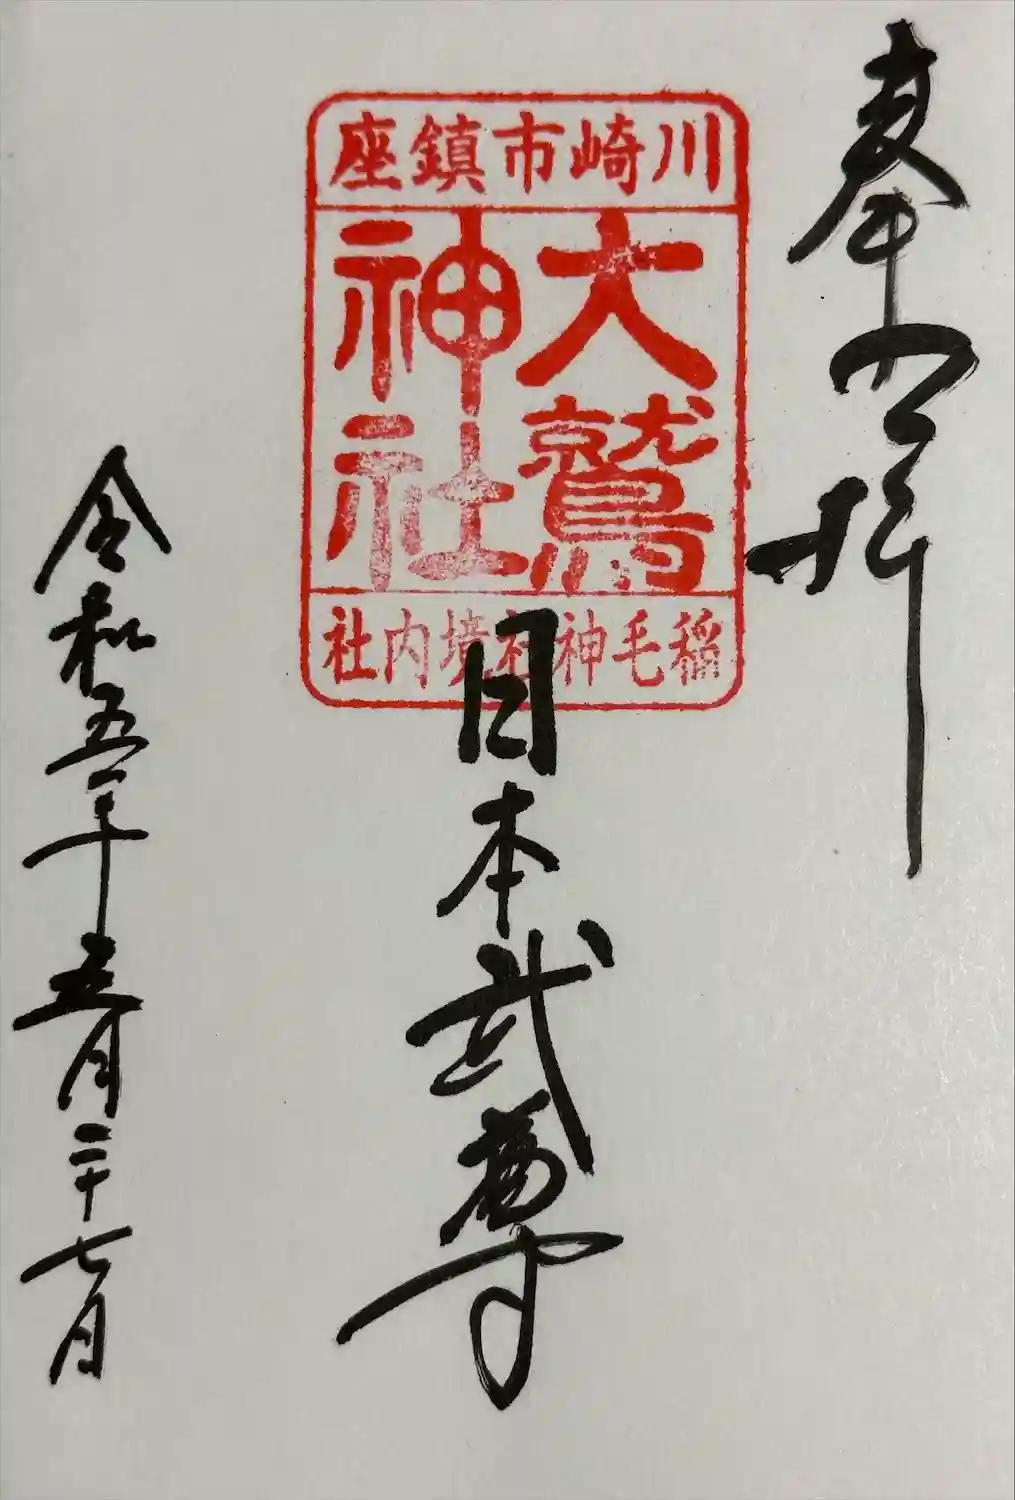 奉拝
川崎市鎮座
大鷲
神社
稲毛神社境内社
日本武尊
令和五年五月二十七日